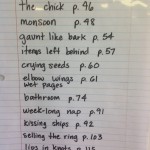 the chick p. 96
monsoon p. 98
gaunt like bark p. 54
items left behind p. 57
crying seeds p. 60
elbow wings p. 61
wet pages
bathroom p. 74
week-long nap p. 91
kissing ships p. 92
selling the ring p. 103
lips in knots p. 115